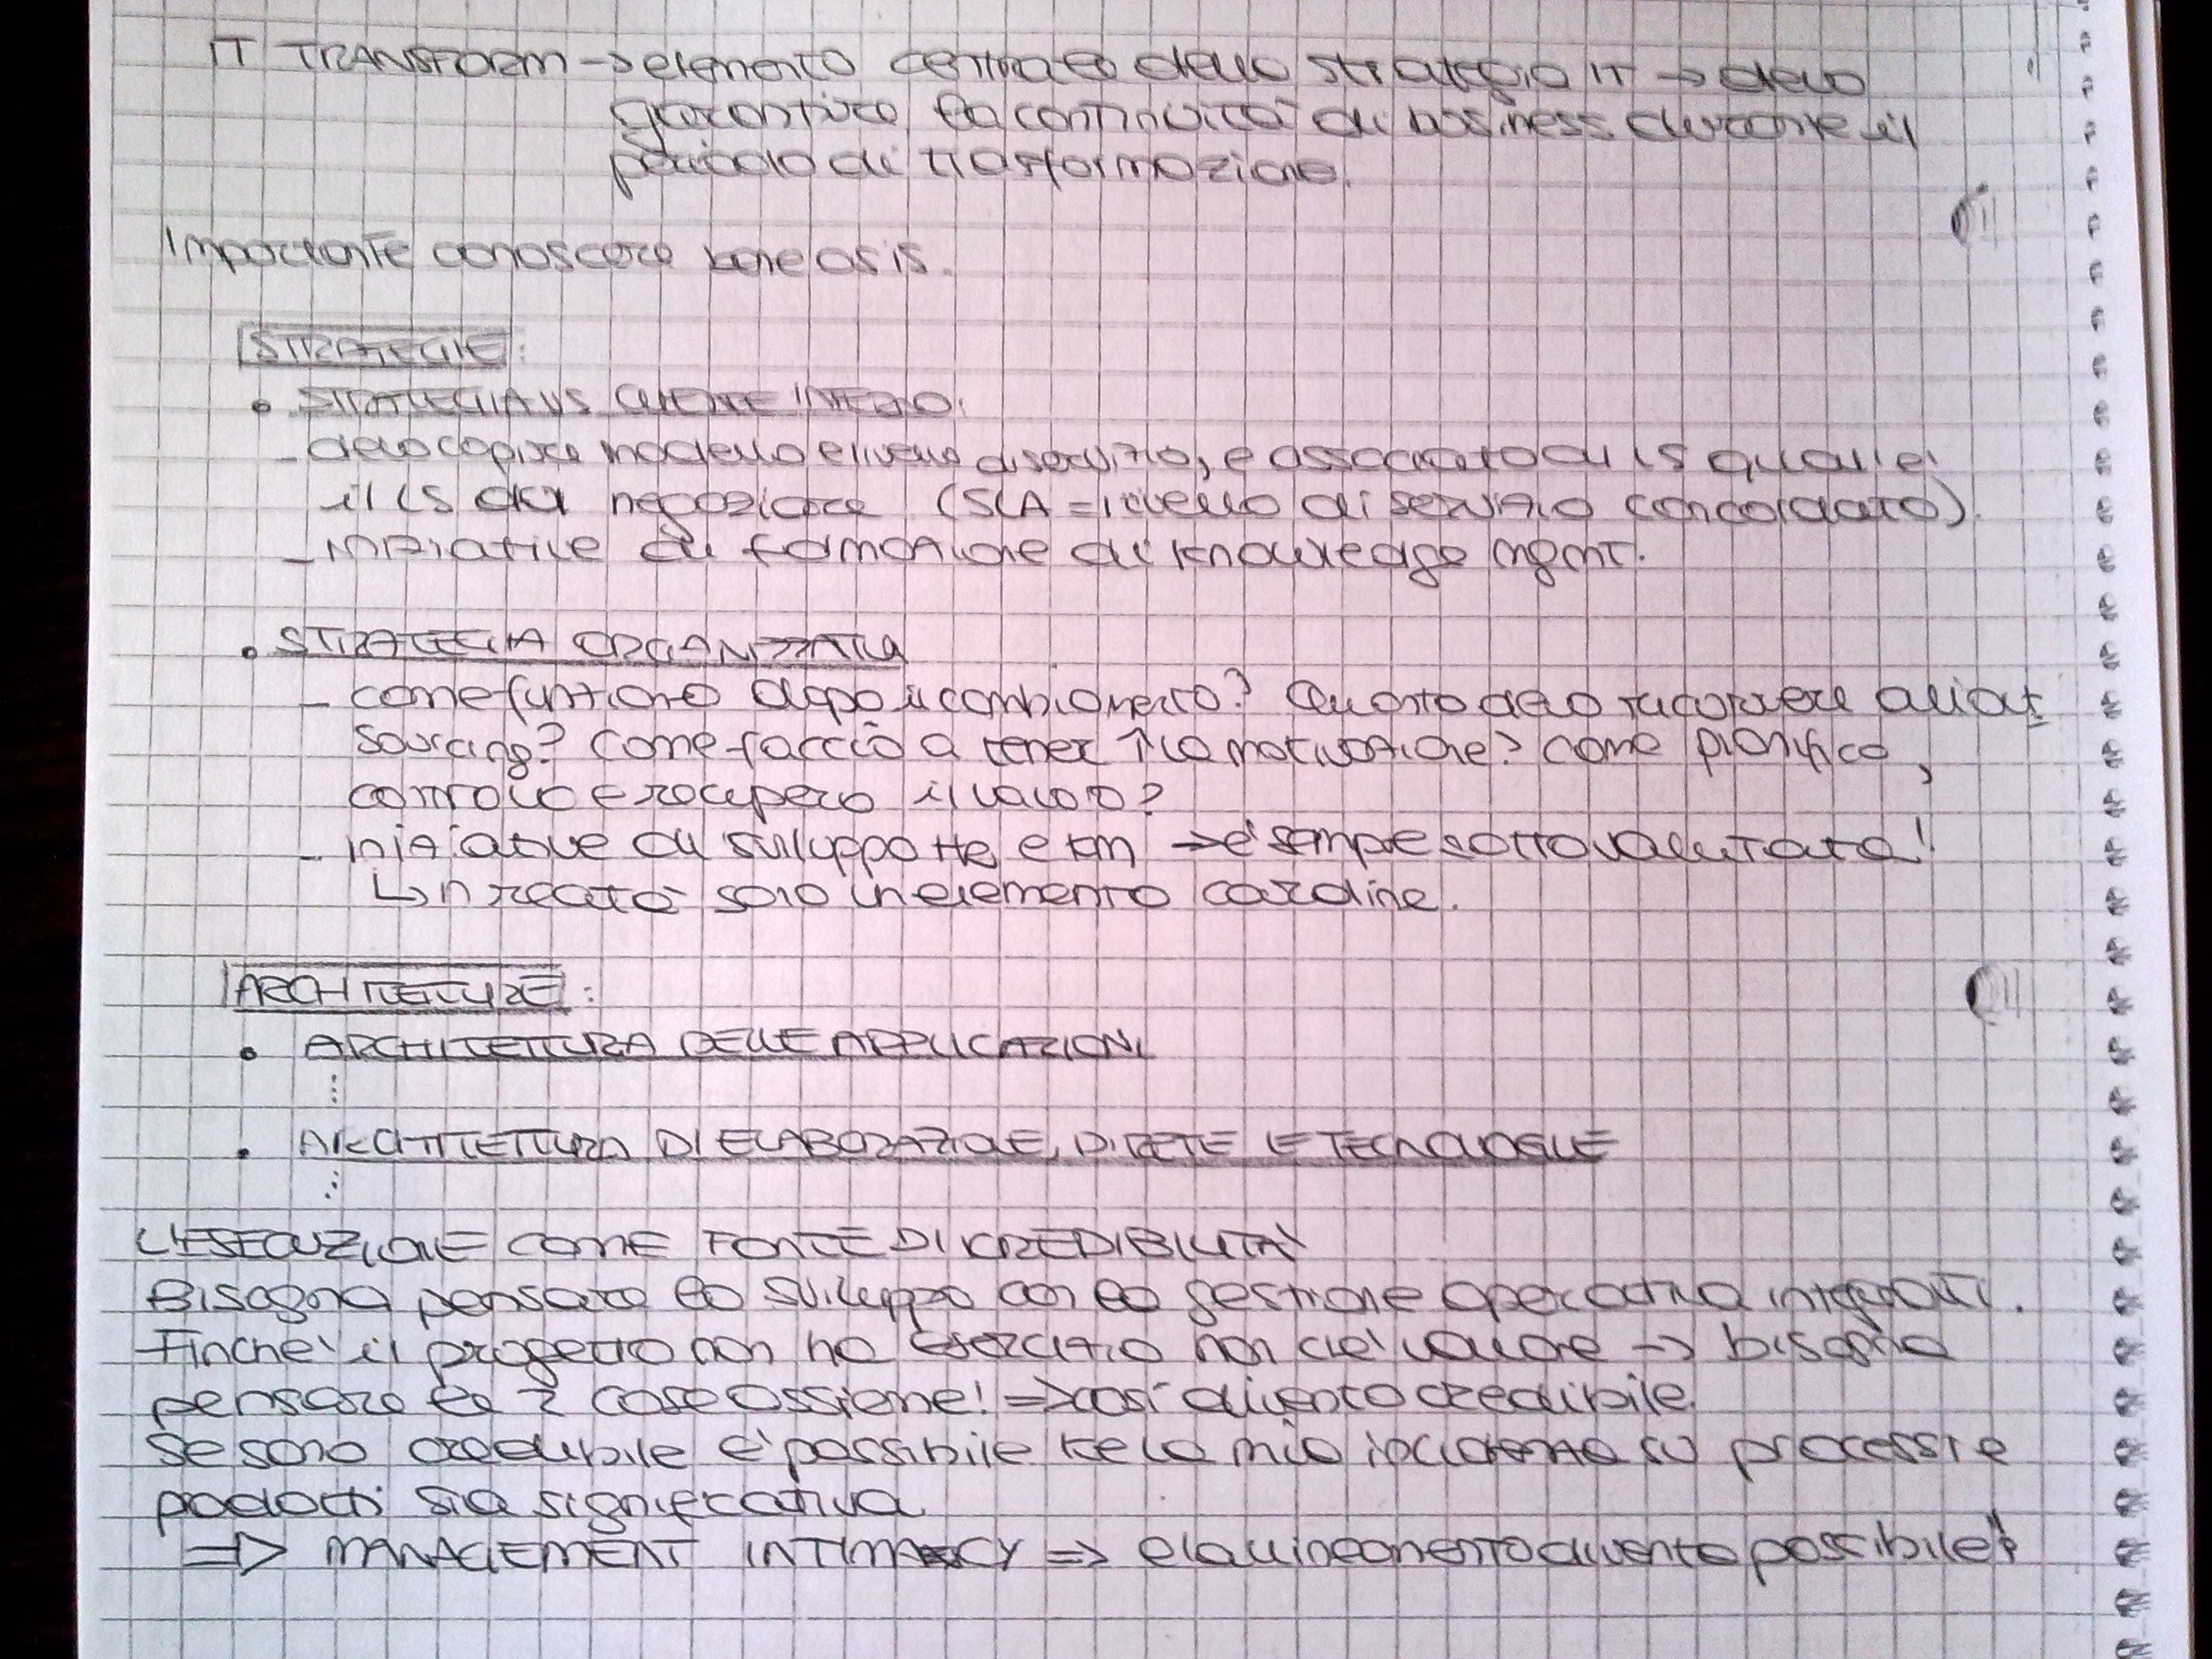 IT TRANSFORM → elemento centrale della strategia IT → devo
garantire la continuità di business durante il
periodo di trasformazione.
Importante conoscere bene as is.
STRATEGIE:
• STRATEGIA VS CLIENTE INTERNO:
- devo capire modello e livello di servizio, e associato di LS qual è
il LS da negoziare (SLA = livello di servizio concordato).
- iniziative di formazione di knowledge mgmt.
• STRATEGIA ORGANIZZATIVA
- come funziono dopo il cambiamento? Quanto devo ricorrere all'out
sourcing? Come faccio a tener ↑ la motivazione? Come pianifico,
controllo e recupero il lavoro?
- iniziative di sviluppo e km → è sempre sottovalutata!
↳ in realtà sono un elemento cardine.
ARCHITETTURE:
• ARCHITETTURA DELLE APPLICAZIONI
⋮
• ARCHITETTURA DI ELABORAZIONE, DI RETE E TECNOLOGIE
⋮
L'ESECUZIONE COME FONTE DI CREDIBILITÀ
Bisogna pensare lo sviluppo con la gestione operativa integrati.
Finchè il progetto non ha esercizio non c'è valore → bisogna
pensare le 2 cose assieme! ⇒ così divento credibile.
Se sono credibile è possibile ke la mia incidenza su processi e
prodotti sia significativa
⇒ MANAGEMENT INTIMACY ⇒ e l'allineamento diventa possibile!